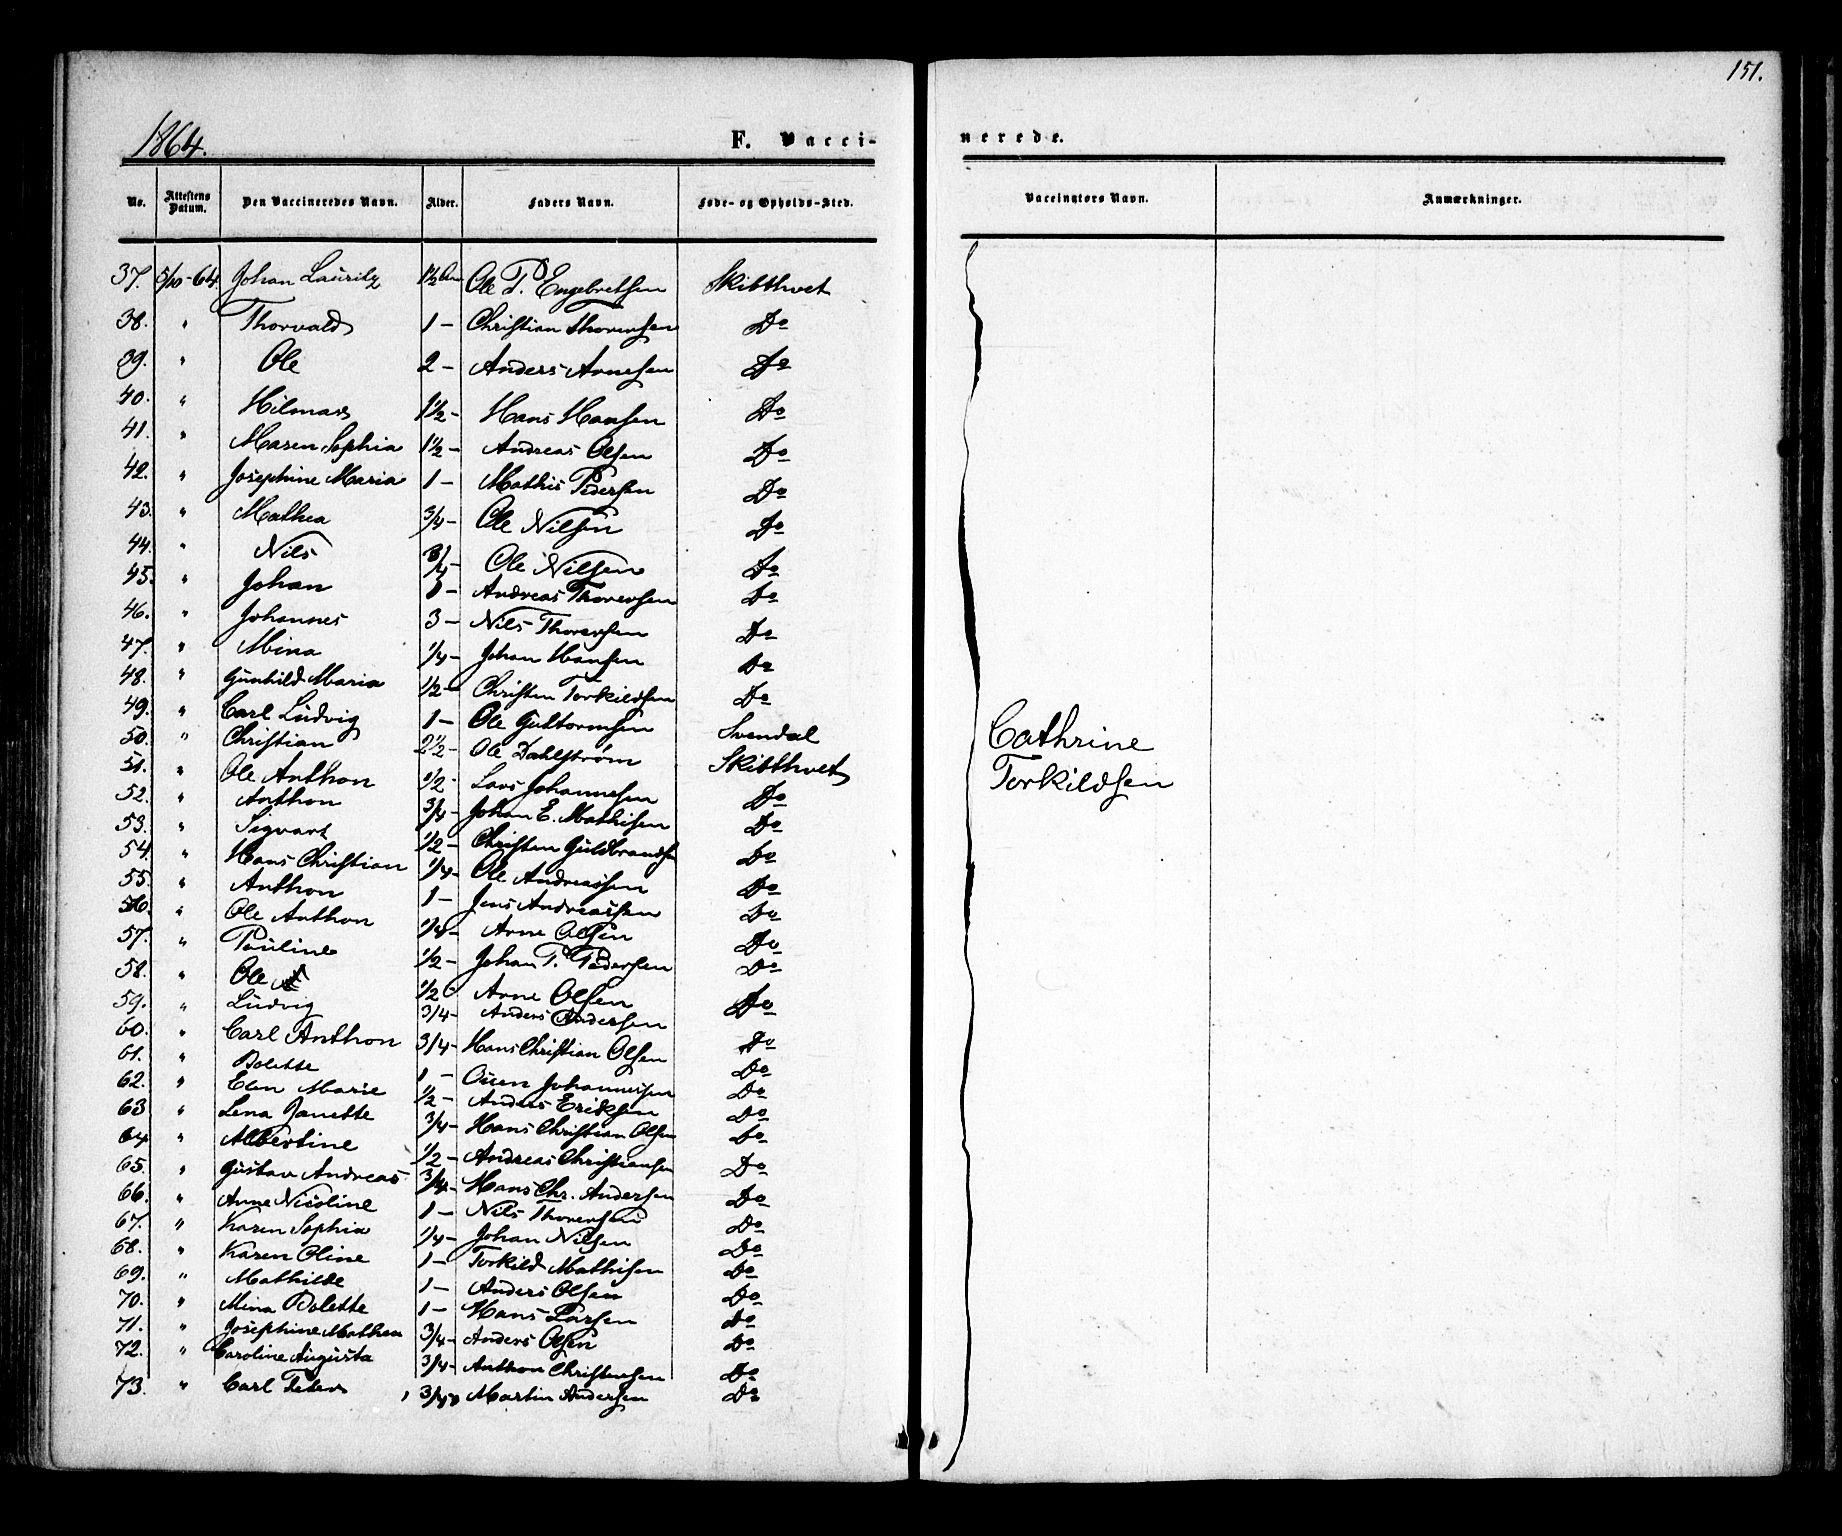 151.
1864.
F. Vacci-
nerede.
No. Attestens Datum. Den Vaccineredes Navn. Alder. Faders Navn. Føde- og Opholds-Sted. Vaccinators Navn. Anmærkninger.
37. 5/10-64 Johan Lauritz 1 1/2 Ole P. Engebretsen Skibthvet
38. " Thorvald 1 – Christian Thoresen Do
39. " Ole 2 – Anders Arnesen Do
40. " Hilmar 1 1/2 – Hans Hansen Do
41. " Maren Sophia 1 1/2 – Andreas Olsen Do
42. " Josephine Maria 1 – Mathis Pedersen Do
43. " Mathea 3/4 – Ole Nilsen Do
44. " Nils 3/4 – Ole Nilsen Do
45. " Johan 1 – Andreas Thoresen Do
46. " Johannes 3 – Nils Thoresen Do
47. " Mina 1/4 – Johan Hansen Do
48. " Gunhild Maria 1/2 – Christen Torkildsen Do
49. " Carl Ludvig 1 – Ole Guttormsen Svendal
50. " Christian 2 1/2 – Ole Dahlstrøm Skibthvet
51. " Ole Anthon 1/2 – Lars Johannesen Do
52. " Anthon 3/4 – Johan E. Mathisen Do
53. " Sigvart 1/2 – Christen Guldbrandsen Do
54. " Hans Christian 1/4 – Ole Andreassen Do
55. " Anthon 1 – Jens Andreassen Do
56. " Ole Anthon 1/4 – Arne Olsen Do
57. " Pauline 1/2 – Johan P. Pedersen Do
58. " Ole 1/2 – Arne Olsen Do
59. " Ludvig 3/4 – Anders Andersen
60. " Carl Anthon 3/4 – Hans Christian Olsen Do
61. " Bolette 1 – Ouen Johannesen Do
62. " Elen Marie 1/2 – Anders Eriksen Do
63 " Lena Janette 3/4 – Hans Christian Olsen Do
64. " Albertine 1/2 – Andreas Christiansen Do
65. " Gustav Andreas 3/4 – Hans Chr. Andersen Do
66. " Anne Nicoline 1 – Nils Thoresen Do
67. " Karen Sophia 1/4 – Johan Nilsen Do
68. " Karen Oline 1 – Torkild Mathisen Do
69. " Mathilde 1 – Anders Olsen Do
70. " Mina Bolette 1 – Hans Larsen Do
71. " Josephine Mathea 3/4 – Anders Olsen Do
72. " Caroline Augusta 3/4 – Anthon Christensen Do
73. " Carl Peter 3/4 Martin Andersen Do
Cathrine
Torkildsen